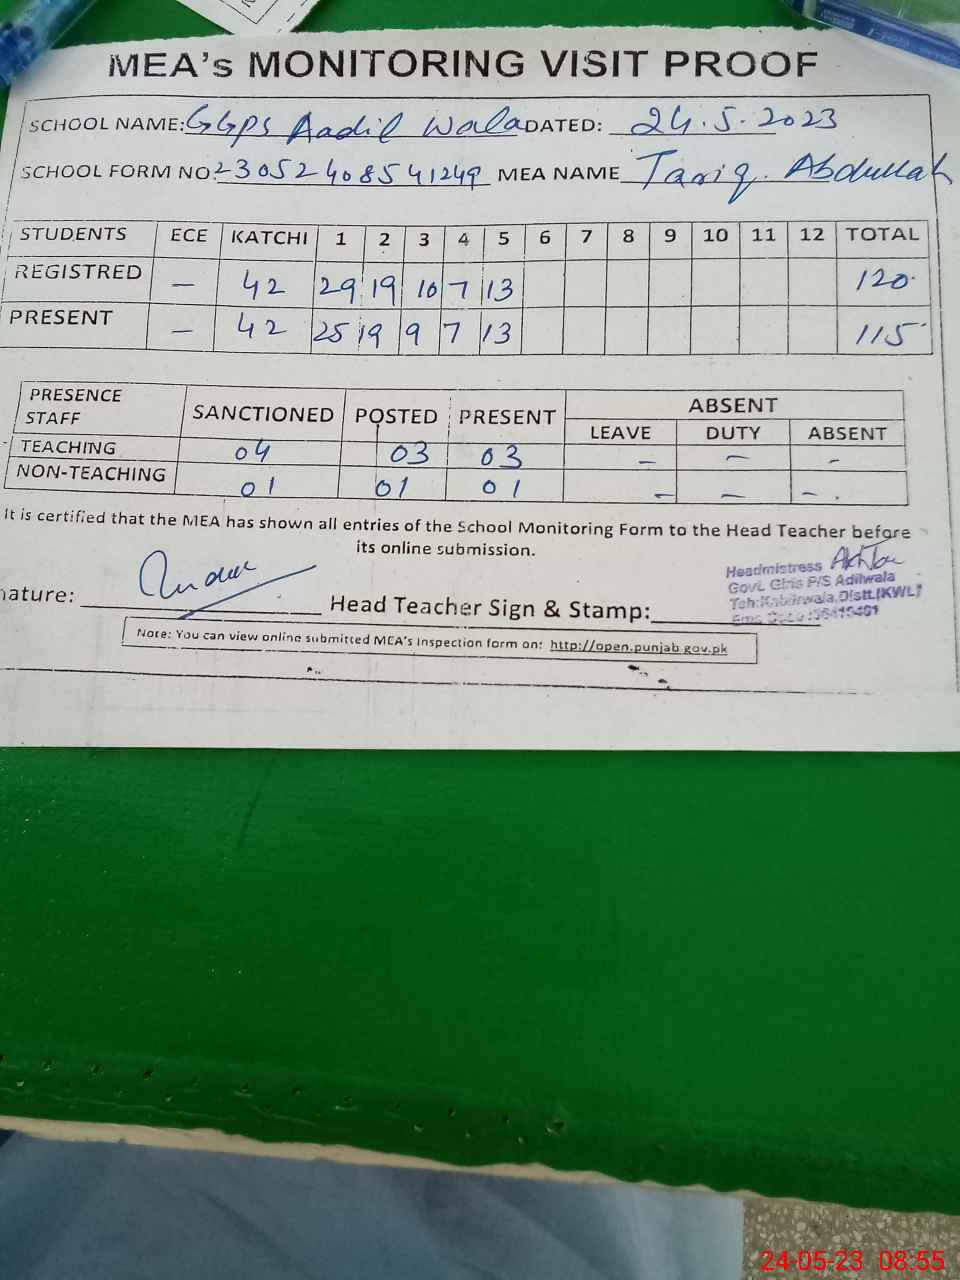 MEA's MONITORING VISIT PROOF
SCHOOL NAME: GGPS Aadil Wala DATED: 24.5.2023
SCHOOL FORM NO. 23052408541249 MEA NAME Tariq Abdullah
STUDENTS ECE KATCHI 1 2 3 4 5 6 7 8 9 10 11 12 TOTAL
REGISTRED — 42 29 19 10 7 13 120
PRESENT — 42 25 19 9 7 13 115
PRESENCE STAFF SANCTIONED POSTED PRESENT ABSENT
LEAVE DUTY ABSENT
TEACHING 04 03 03 – – –
NON-TEACHING 01 01 01 – – –
It is certified that the MEA has shown all entries of the School Monitoring Form to the Head Teacher before
its online submission.
Headmistress
Govt. Girls P/S Adilwala
Teh: Kabirwala, Distt.(KWL)
nature: Head Teacher Sign & Stamp:
Note: You can view online submitted MEA's Inspection form on: http://open.punjab.gov.pk
24-05-23 08:55